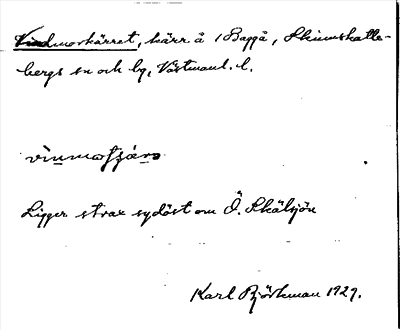 Vindmorkärret, kärr å 1 Baggå, Skinnskatte-
bergs sn och by, Västmanl. l.
vìnmoṣṣáro
Ligger strax sydöst om Ö. Skälsjön
Karl Björkman 1929.